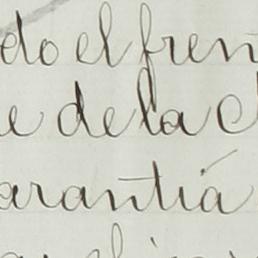 do el fren
e de la C
arantía